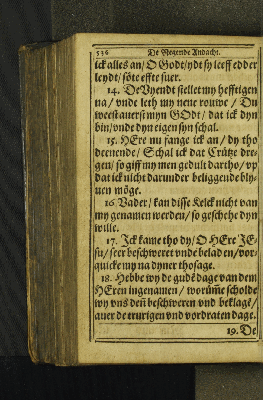 536 De Negende Andacht.
ick alles an/ O Godt/ ydt sy leeff edder
leydt/ söte effte suer.
14. De Vyendt stellet my hefftigen
na/ vnde leth my nene rouwe / Du
weest auerst myn GOdt/ dat ick dyn
bin/ vnde dyn eigen syn schal.
15. HEre nu fange ick an/ dy tho
deenende/ Schal ick dat Crütze dre-
gen/ so giff my men gedult dartho/ vp
dat ick nicht darunder beliggende bly-
uen möge.
16. Vader/ kan disse Kelck nicht van
my genamen werden/ so geschehe dyn
wille.
17. Ick kame tho dy/ O HEre JE-
su/ seer beschweret vnde beladen/ vor-
quicke my na dyner thosage.
18. Hebbe wy de gudē dage van dem
HEren ingenamen / worüme scholde
wy vns deñ beschweren vnd beklagē/
auer de trurigen vnd vordraten dage.
19. De